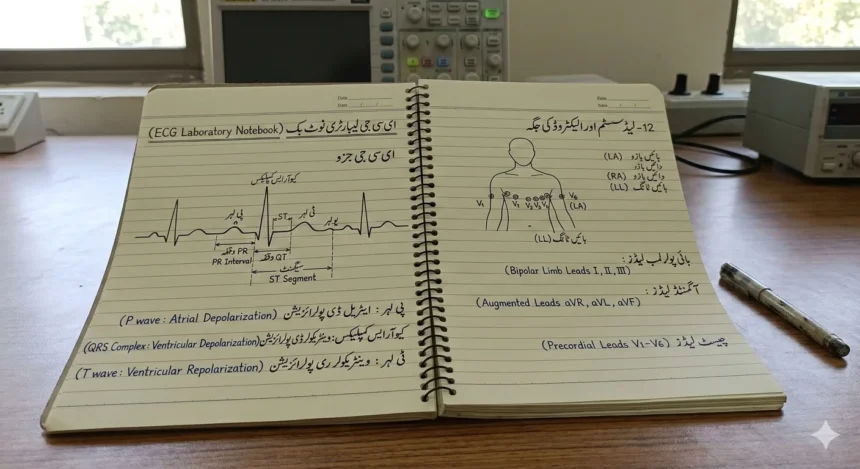 Date
Date / /
ای سی جی لیبارٹری نوٹ بک (ECG Laboratory Notebook)
ای سی جی جزو
کیو آر ایس کمپلیکس
پی لہر
ST
ٹی لہر
یو لہر
وقفہ PR
PR Interval
وقفہ QT
سیگمنٹ
ST Segment
پی لہر : ایٹریل ڈی پولرائزیشن (P wave : Atrial Depolarization)
کیو آر ایس کمپلیکس: وینٹریکولر ڈی پولرائزیشن (QRS Complex : Ventricular Depolarization)
ٹی لہر : وینٹریکولر ری پولرائزیشن (T wave : Ventricular Repolarization)
12- لیڈ سسٹم اور الیکٹروڈ کی جگہ
بائیں بازو (LA)
دائیں بازو
دائیں بازو (RA)
بائیں ٹانگ (LL)
V₁
V₁
V₂
V₃
V₄
V₆
(LA)
بائیں ٹانگ (LL)
بائی پولر لمب لیڈز :
(Bipolar Limb Leads I, II, III)
آگمنٹڈ لیڈز :
(Augmented Leads aVR, aVL, aVF)
چیسٹ لیڈز (Precordial Leads V₁-V₆)